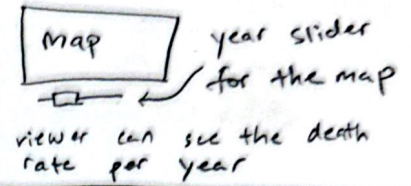 map
year slider
for the map
viewer can see the death
rate per year